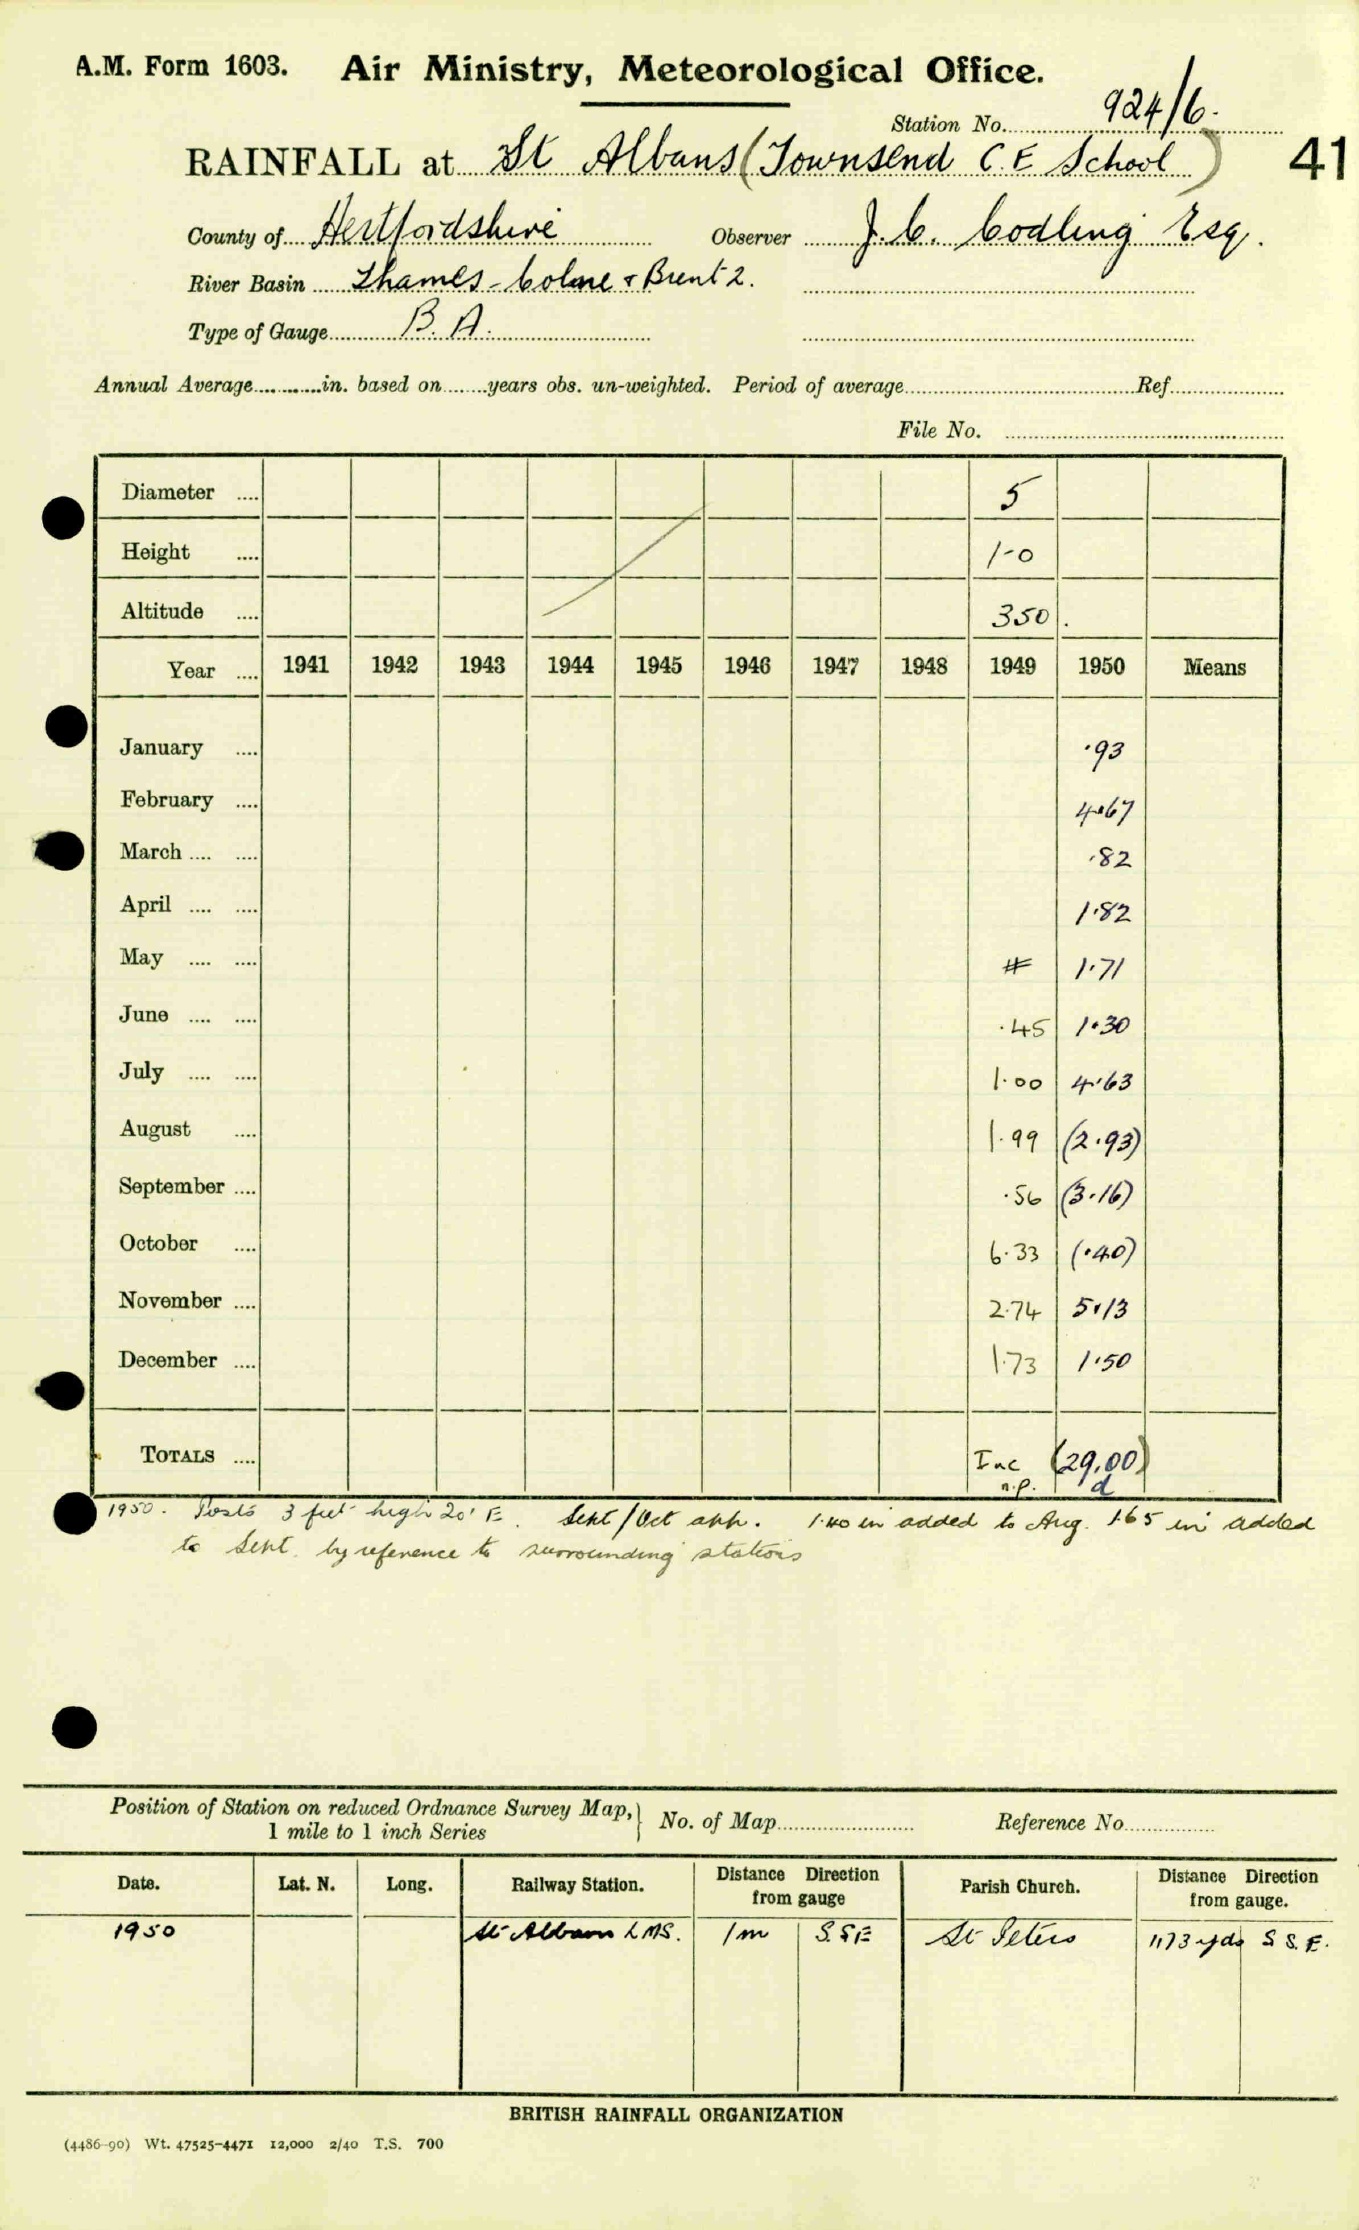 A.M. Form 1603. Air Ministry, Meteorological Office.
Station No. 924/6.
RAINFALL at St Albans (Townsend C.E School)
41
County of Hertfordshire Observer J.C. Codling Esq.
River Basin Thames - Colne & Brent 2.
Type of Gauge B.A.
Annual Average in. based on years obs. un-weighted. Period of average Ref.
File No.
Diameter 5
Height 1-0
Altitude 350.
Year 1941 1942 1943 1944 1945 1946 1947 1948 1949 1950 Means
January ·93
February 4·67
March ·82
April 1·82
May # 1·71
June ·45 1·30
July 1·00 4·63
August 1·99 (2·93)
September ·56 (3·16)
October 6·33 (·40)
November 2·74 5·13
December 1·73 1·50
TOTALS Inc (29.00)
n.p. d
1950. Posts 3 feet high 20' E. Sept/Oct app. 1·40 in added to Aug. 1·65 in added
to Sept. by reference to surrounding stations
Position of Station on reduced Ordnance Survey Map, 1 mile to 1 inch Series } No. of Map Reference No.
Date. Lat. N. Long. Railway Station. Distance Direction from gauge Parish Church. Distance Direction from gauge.
1950 St Albans LMS. 1m S.S.E St Peters 1173 yds S S.E.
BRITISH RAINFALL ORGANIZATION
(4486-90) Wt. 47525-4471 12,000 2/40 T.S. 700